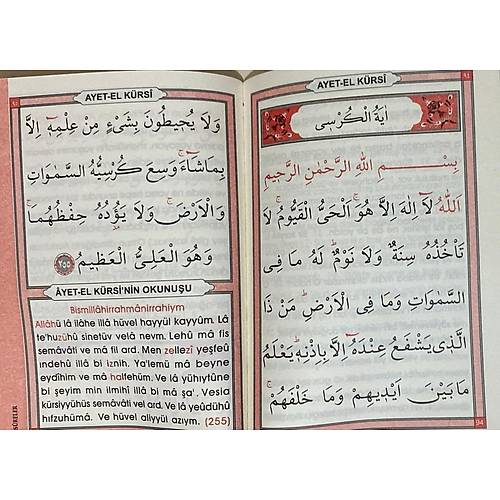 AYET-EL KÜRSİ
اٰيَةُ الْكُرْسِى
بِسْــــمِ اللهِ الرَّحْمٰنِ الرَّحٖيمِ
اَللّٰهُ لَٓا اِلٰهَ اِلَّا هُوَۚ اَلْحَىُّ الْقَيُّومُۚ لَا
تَأْخُذُهُ سِنَةٌ وَلَا نَوْمٌۜ لَهُ مَا فِى
السَّمٰوَاتِ وَمَا فِى الْاَرْضِۜ مَنْ ذَا
الَّذٖى يَشْفَعُ عِنْدَهُٓ اِلَّا بِاِذْنِهٖۜ يَعْلَمُ
مَا بَيْنَ اَيْدٖيهِمْ وَمَا خَلْفَهُمْۚ
94
AYET-EL KÜRSİ
وَلَا يُحٖيطُونَ بِشَىْءٍ مِنْ عِلْمِهٖٓ اِلَّا
بِمَاشَٓاءَۚ وَسِعَ كُرْسِيُّهُ السَّمٰوَاتِ
وَالْاَرْضَۚ وَلَا يَؤُدُهُ حِفْظُهُمَاۚ
وَهُوَ الْعَلِىُّ الْعَظٖيمُ ﴿٢٥٥﴾
ÂYET-EL KÜRSİ'NİN OKUNUŞU
Bismillâhirrahmânirrahiym
Allâhü lâ ilâhe illâ hüvel hayyül kayyûm. Lâ
te'huzühû sinetüv velâ nevm. Lehû mâ fis
semâvâti ve mâ fil ard. Men zellezî yeşfeû
indehû illâ bi iznih. Ya'lemü mâ beyne
eydîhim ve mâ halfehüm. Ve lâ yühıytûne
bi şeyim min ilmihî illâ bi mâ şa'. Vesia
kürsiyyühüs semâvâti vel ard. Ve lâ yeûdühû
hıfzuhümâ. Ve hüvel aliyyül azıym. (255)
SÛRELER